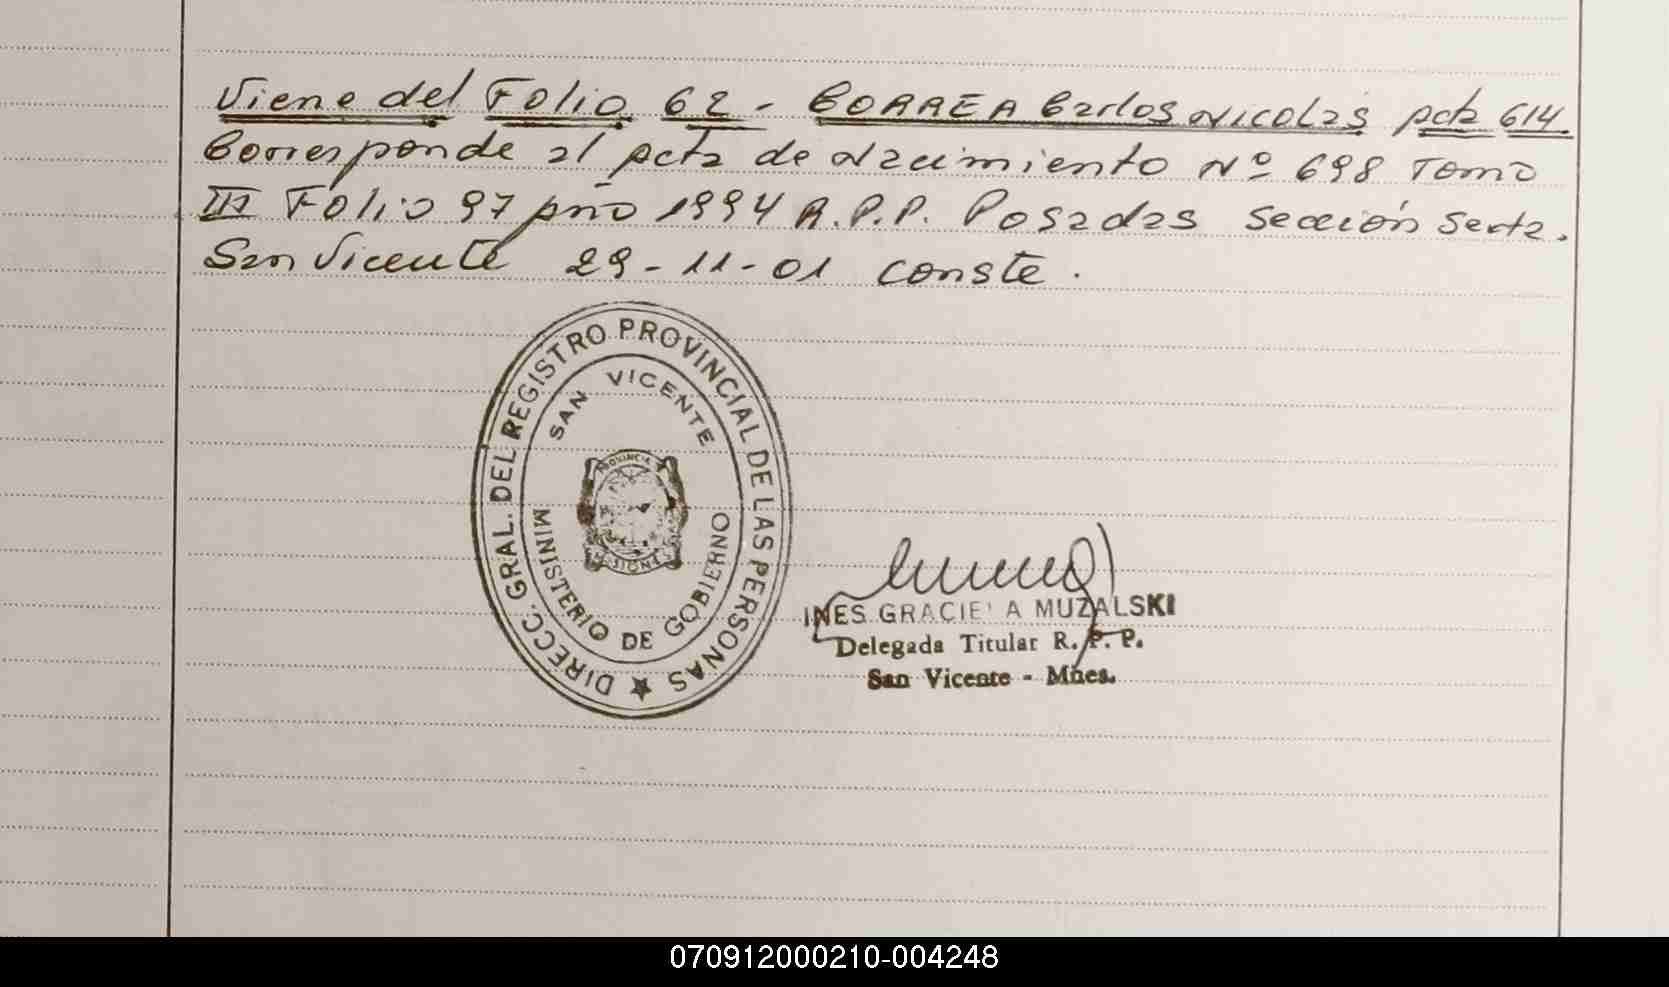 Viene del Folio 62 - CORREA Carlos Nicolas acta 614
Corresponde al acta de Nacimiento Nº 698 Tomo
III Folio 97 año 1994 R.P.P. Posadas Sección Sexta.
San Vicente 29-11-01 Conste.
DIRECC. GRAL. DEL REGISTRO PROVINCIAL DE LAS PERSONAS
SAN VICENTE
PROVINCIA
MINISTERIO DE GOBIERNO
INES GRACIELA MUZALSKI
Delegada Titular R.P.P.
San Vicente - Mnes.
070912000210-004248